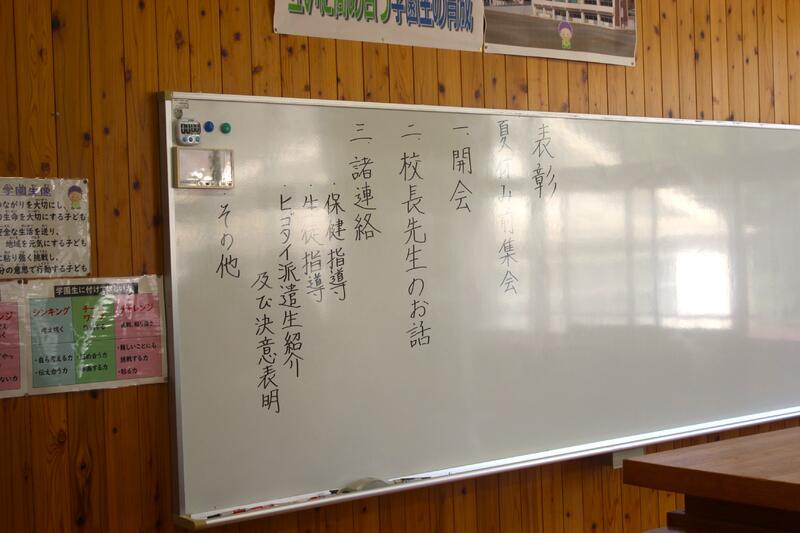 学園生の育成
表彰
夏休み前集会
一.開会
二.校長先生のお話
三.諸連絡
・保健指導
・生徒指導
・ヒゴタイ派遣生紹介
及び決意表明
その他
学園生像
ながりを大切にし、
生命を大切にする子ども
全な生活を送り、
地域を元気にする子ども
に粘り強く挑戦し、
分の意思で行動する子ども
学園生に付け
シンキング
考え抜く
・自ら考える力
・伝え合う力
チー
ワー
める力
する力
チャレンジ
挑戦、粘り強さ
・難しいことにも
挑戦する力
・粘る力